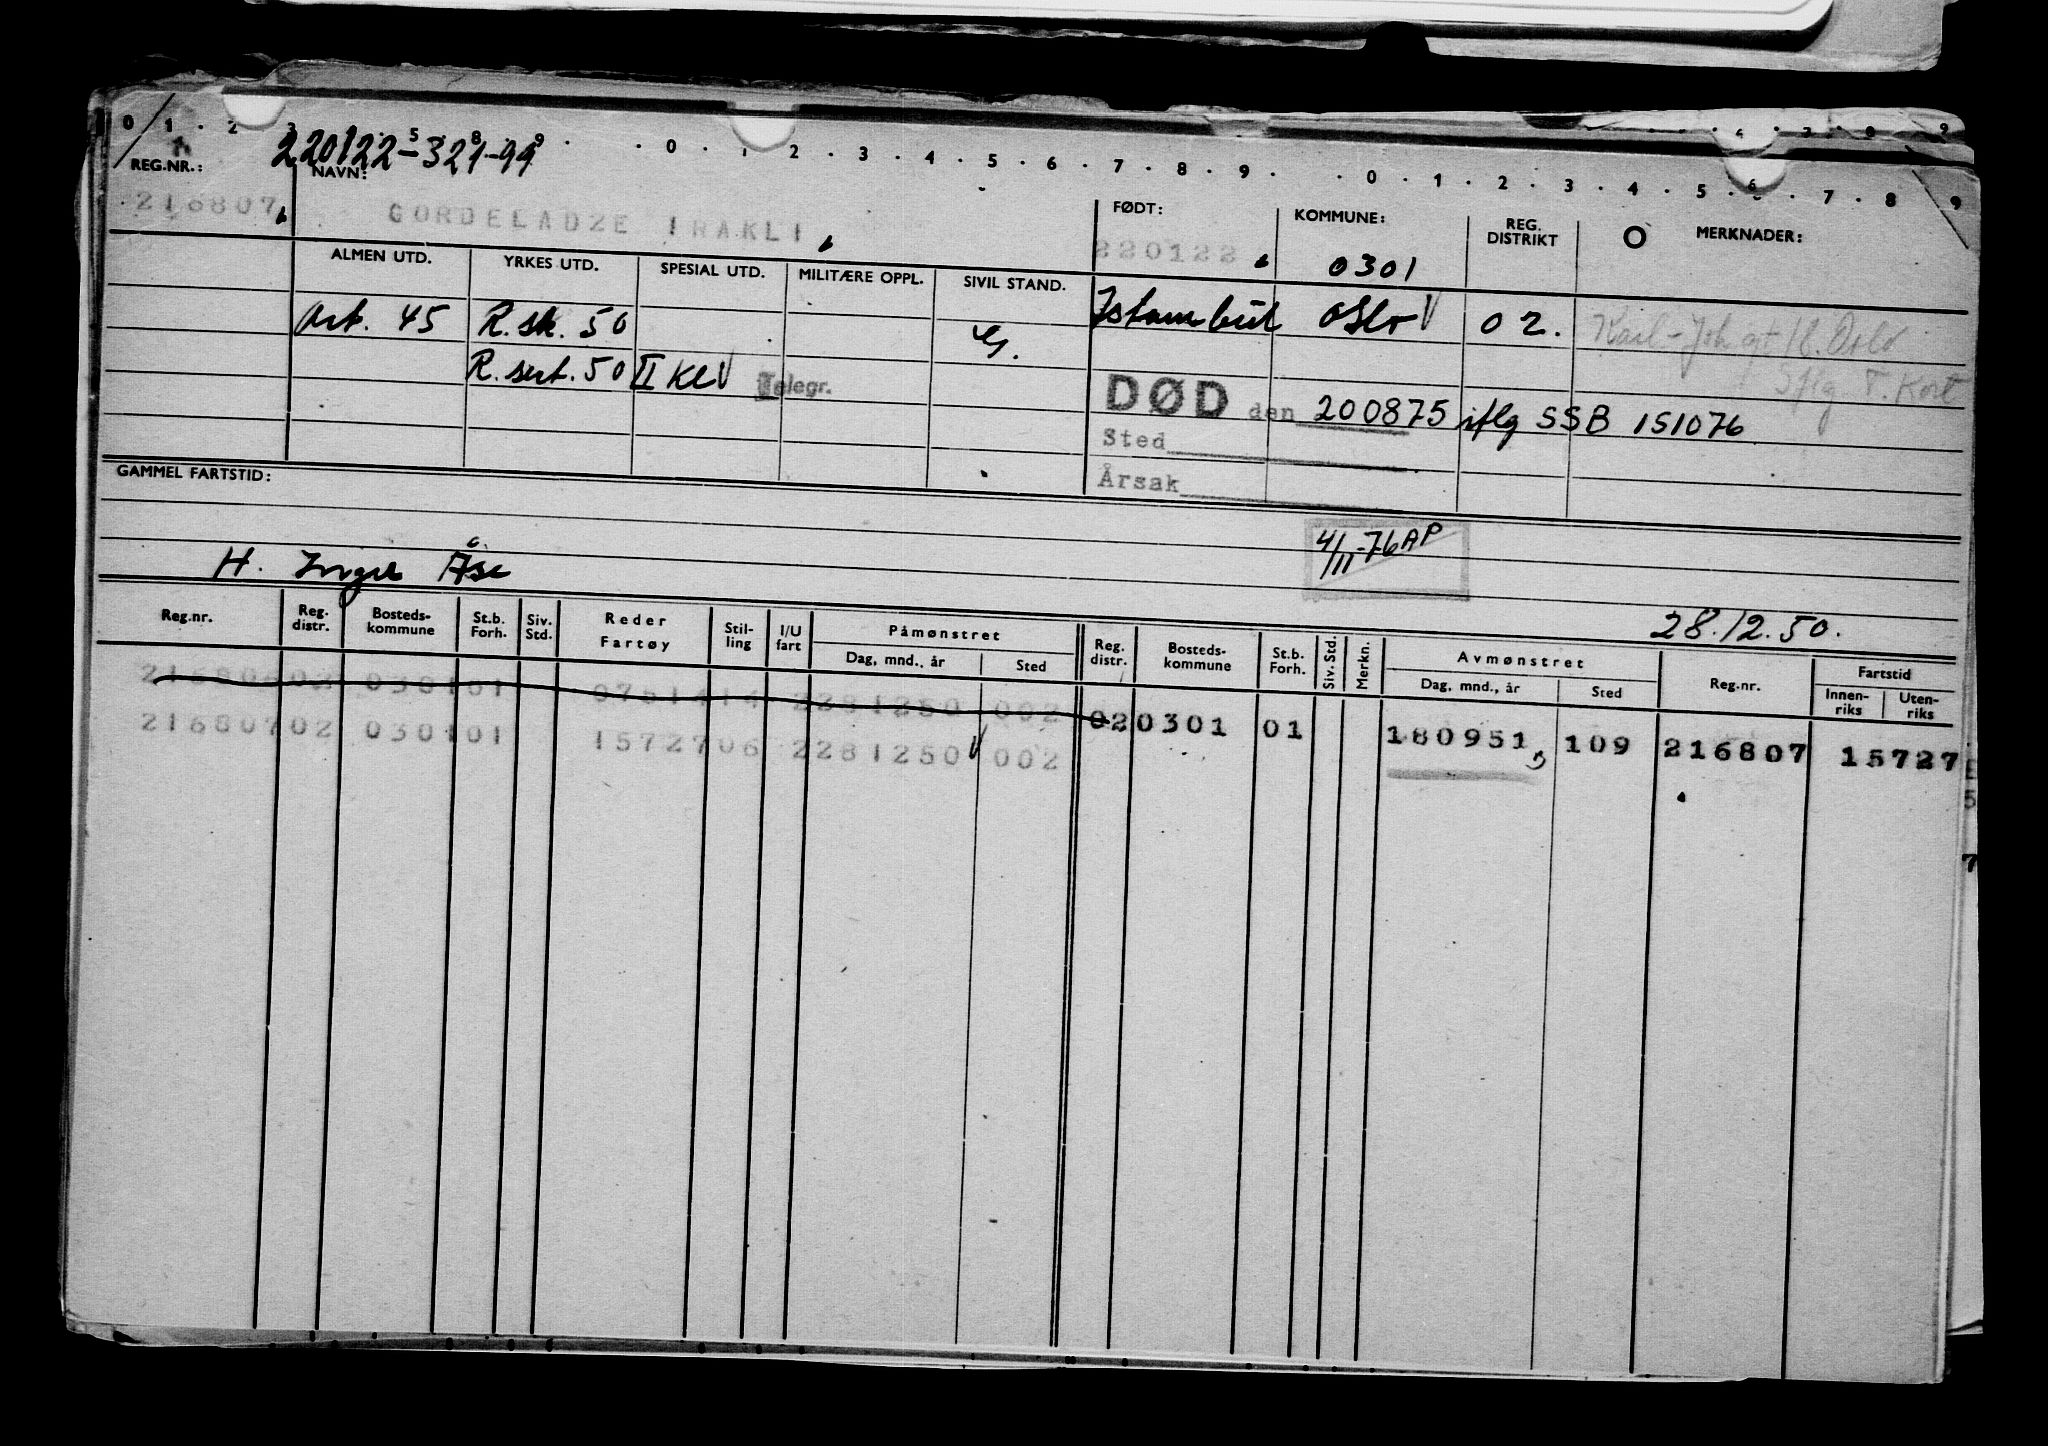 0 1 2 3 5 8 9 0 1 2 3 4 5 6 7 8 9 0 1 2 3 4 5 6 7 8 9
220122-321-99
REG.NR.: NAVN: FØDT: KOMMUNE: REG. DISTRIKT O MERKNADER:
216807 GORDELADZE IRAKLI 220122 0301
ALMEN UTD. YRKES UTD. SPESIAL UTD. MILITÆRE OPPL. SIVIL STAND.
Art. 45 R.sk. 50 G. Istambul Oslo 02. Karl-Joh gt 16. Oslo
R.sert. 50 II Kl Telegr. Iflg T. Kort
DØD den 200875 iflg SSB 151076
Sted
Årsak
GAMMEL FARTSTID:
4/11-76 AP
H. Inger Åse
28.12.50.
Reg.nr. Reg. distr. Bosteds-kommune St.b. Forh. Siv. Std. Reder Fartøy Stil-ling I/U fart Påmønstret Dag, mnd., år Sted Reg. distr. Bosteds-kommune St.b. Forh. Siv. Std. Merkn. Avmønstret Dag, mnd., år Sted Reg.nr. Fartstid Innen-riks Uten-riks
2281250 002
21680702 030101 1572706 2281250 002 020301 01 180951 109 216807 15727